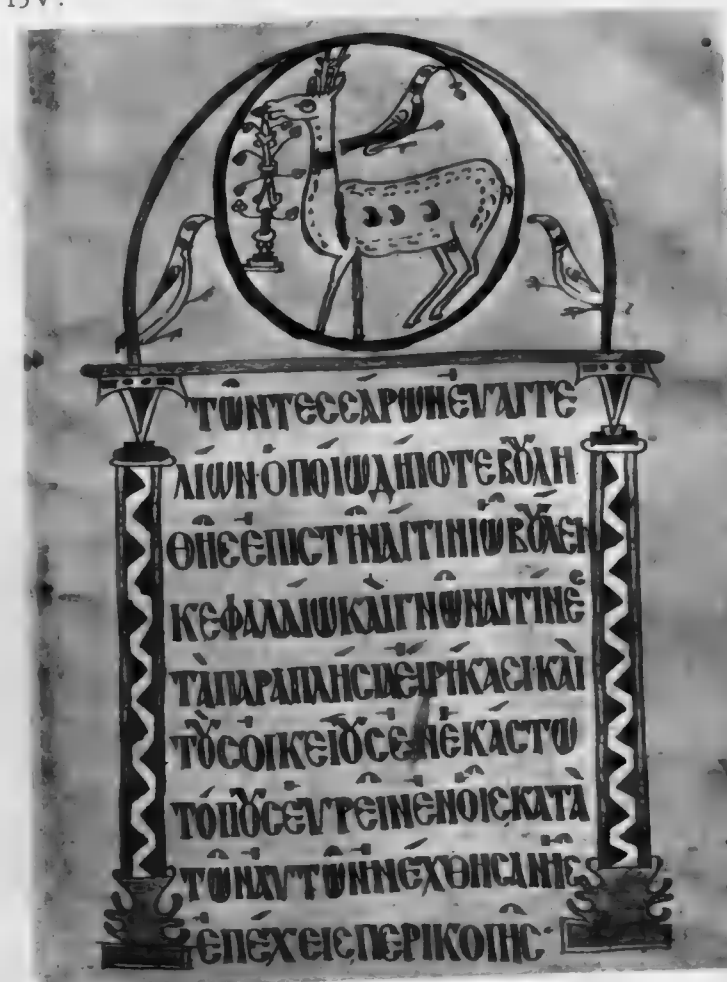 15v.
ΤΩΝ ΤΕϹϹΑΡΩΝ ΕΥΑΓΓΕ
ΛΙΩΝ· ΟΠΟΙΩΔΗΠΟΤΕ ΒȢΛΗ
ΘΗϹ ΕΠΙϹΤΗΝΑΙ ΤΙΝΙ Ω ΒȢΛΕΙ
ΚΕΦΑΛΑΙΩ ΚΑΙ ΓΝΩΝΑΙ ΤΙΝΕϹ
ΤΑ ΠΑΡΑΠΛΗϹΙΑ ΕΙΡΗΚΑϹΙ ΚΑΙ
ΤȢϹ ΟΙΚΕΙȢϹ ΕΝ ΕΚΑϹΤΩ
ΤΟΠȢϹ ΕΥΡΕΙΝ ΕΝ ΟΙϹ ΚΑΤΑ
ΤΩΝ ΑΥΤΩΝ ΗΝΕΧΘΗϹΑΝ ΗϹ
ΕΠΕΧΕΙϹ ΠΕΡΙΚΟΠΗϹ·